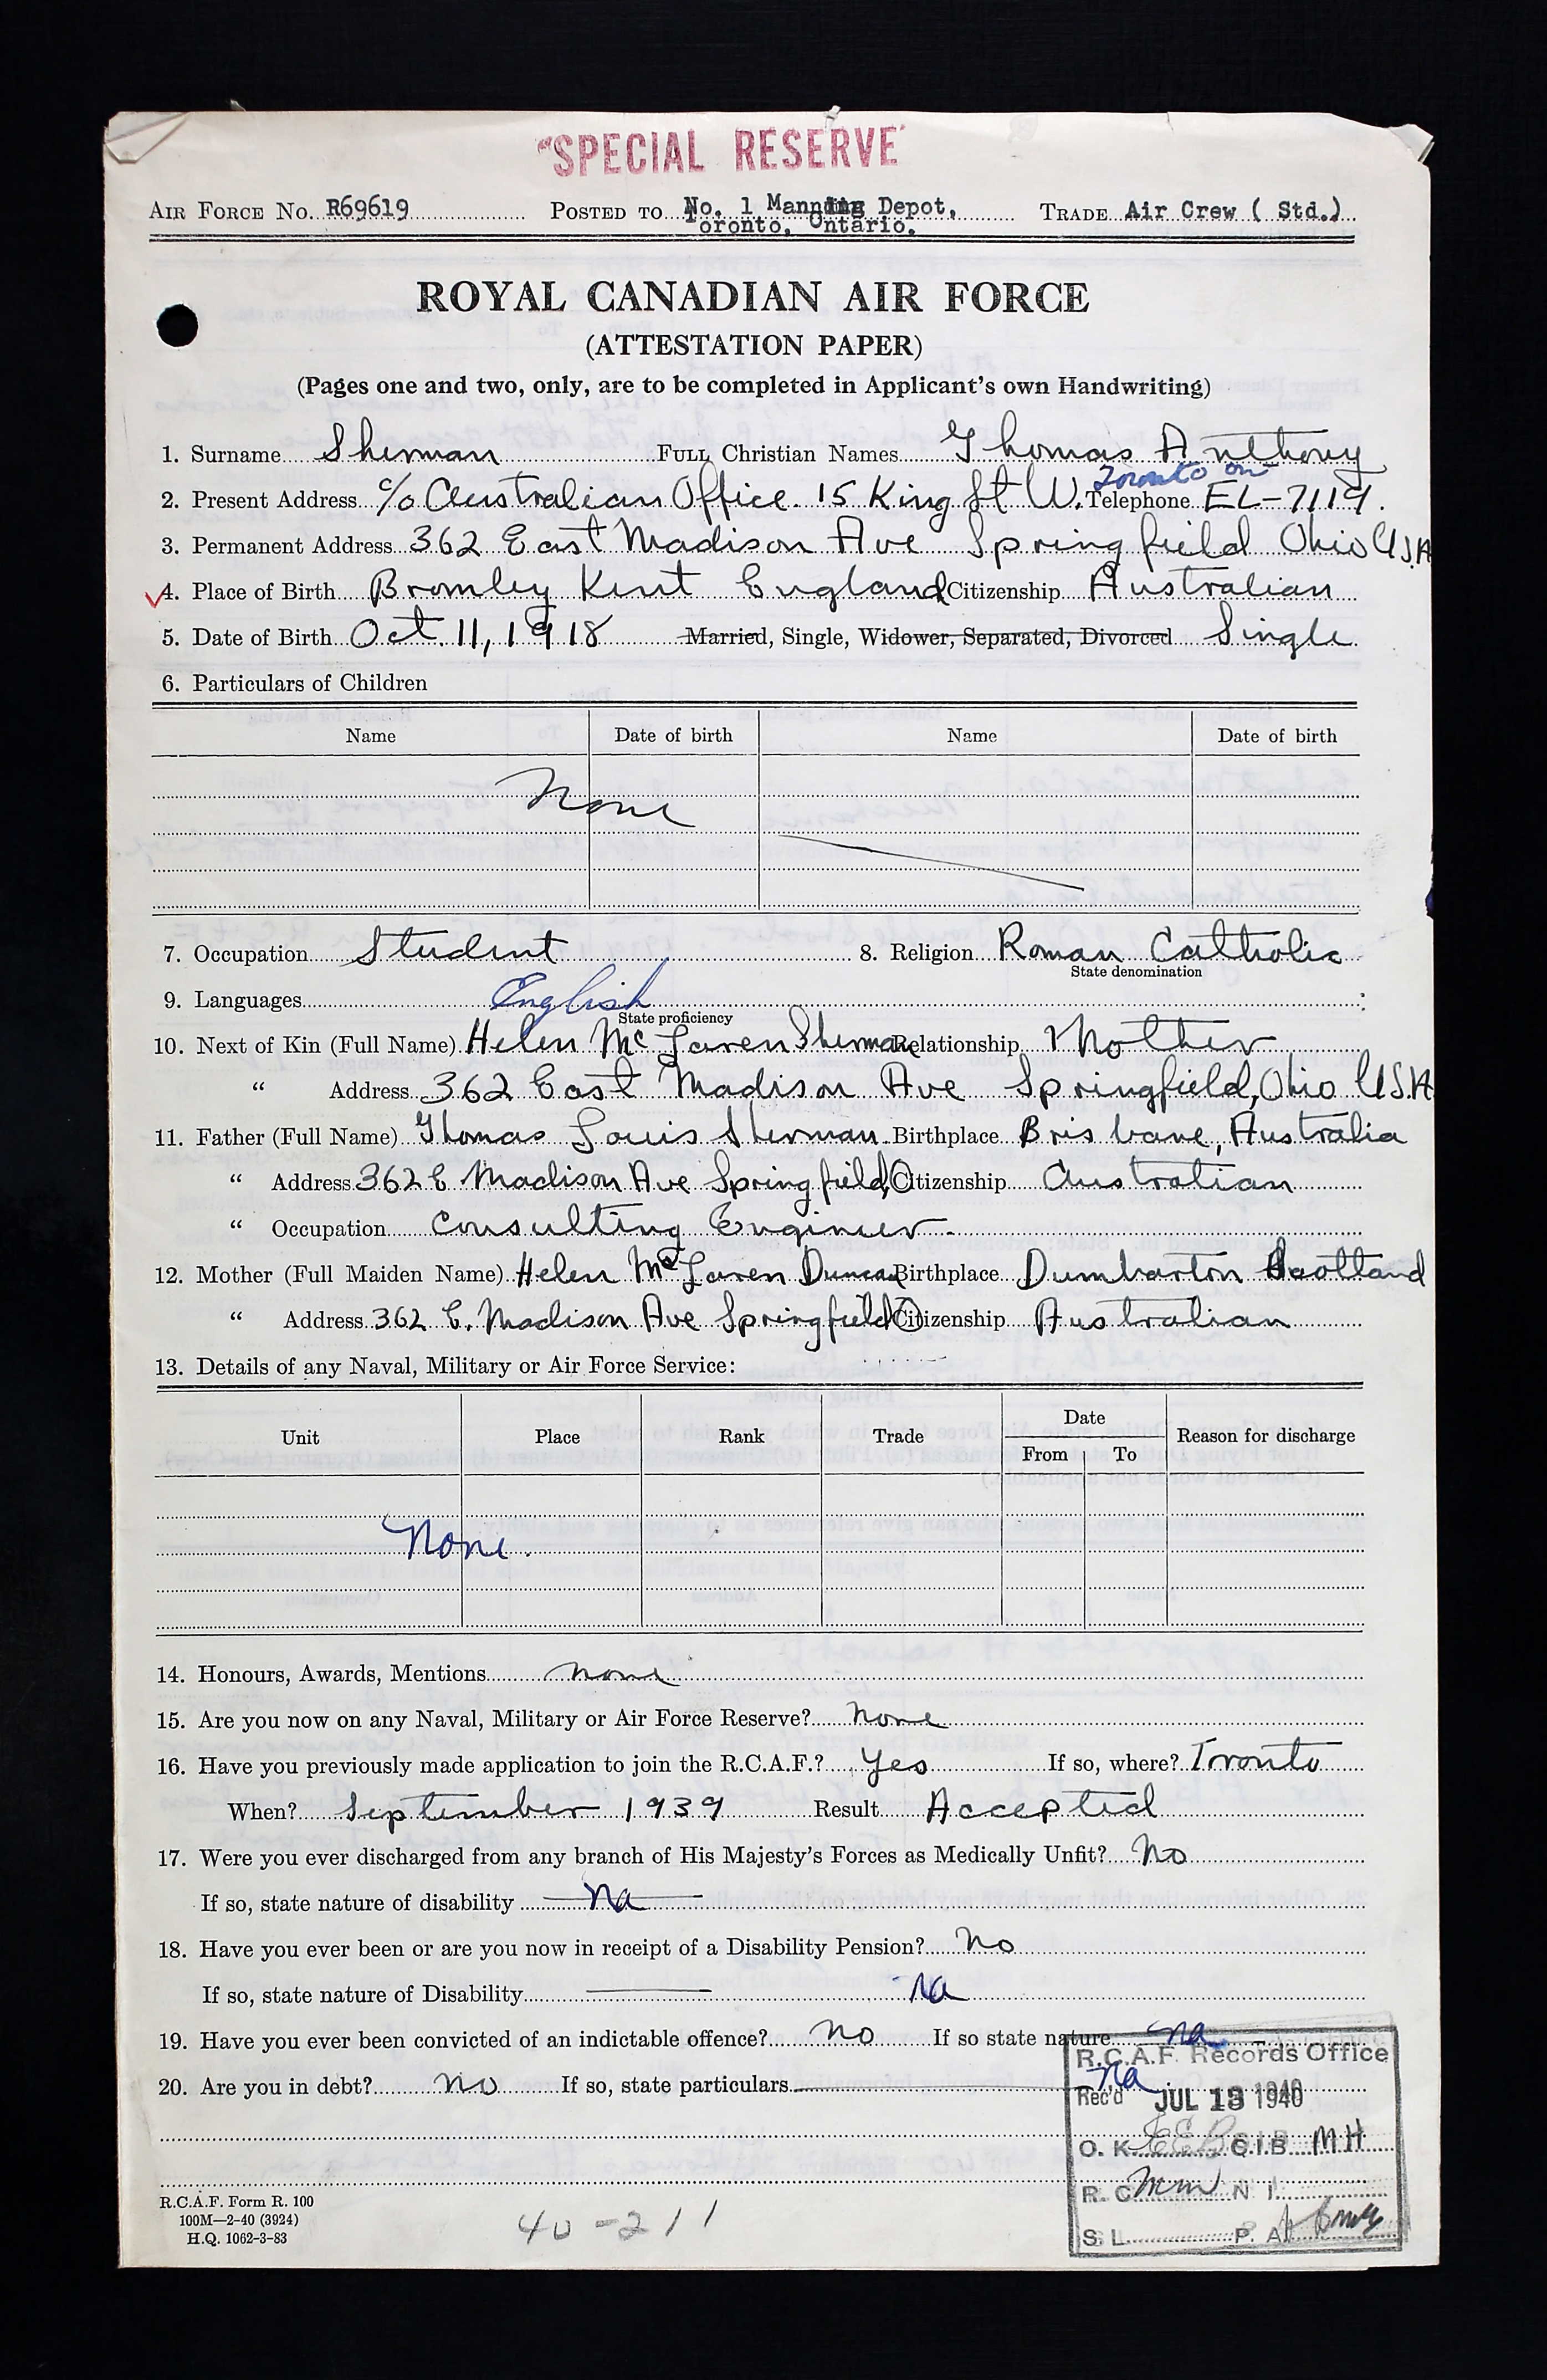 "SPECIAL RESERVE"
AIR FORCE NO. R69619 POSTED TO No. 1 Manning Depot, Toronto, Ontario. TRADE Air Crew ( Std.)
ROYAL CANADIAN AIR FORCE
(ATTESTATION PAPER)
(Pages one and two, only, are to be completed in Applicant's own Handwriting)
1. Surname Sherman FULL Christian Names Thomas Anthony
2. Present Address c/o Australian Office. 15 King St W. Toronto Ont Telephone EL-7119.
3. Permanent Address 362 East Madison Ave Springfield Ohio USA
4. Place of Birth Bromley Kent England Citizenship Australian
5. Date of Birth Oct. 11, 1918 Married, Single, Widower, Separated, Divorced Single
6. Particulars of Children
Name Date of birth Name Date of birth
None
7. Occupation Student 8. Religion Roman Catholic
State denomination
9. Languages English
State proficiency
10. Next of Kin (Full Name) Helen McLaren Sherman Relationship Mother
" Address 362 East Madison Ave Springfield, Ohio U.S.A
11. Father (Full Name) Thomas Louis Sherman Birthplace Brisbane, Australia
" Address 362 E Madison Ave Springfield, O Citizenship Australian
" Occupation Consulting Engineer
12. Mother (Full Maiden Name) Helen McLaren Duncan Birthplace Dumbarton Scotland
" Address 362 E. Madison Ave Springfield O Citizenship Australian
13. Details of any Naval, Military or Air Force Service:
Unit Place Rank Trade Date Reason for discharge
From To
None.
14. Honours, Awards, Mentions none
15. Are you now on any Naval, Military or Air Force Reserve? None
16. Have you previously made application to join the R.C.A.F.? Yes If so, where? Toronto
When? September 1939 Result Accepted
17. Were you ever discharged from any branch of His Majesty's Forces as Medically Unfit? No
If so, state nature of disability Na
18. Have you ever been or are you now in receipt of a Disability Pension? No
If so, state nature of Disability Na
19. Have you ever been convicted of an indictable offence? No If so state nature na
20. Are you in debt? no If so, state particulars Na
R.C.A.F. Records Office
Rec'd JUL 13 1940
O. K. EEB C.I.B. MH
R. C. mm N I.
S. L. P. A.
R.C.A.F. Form R. 100
100M—2-40 (3924)
H.Q. 1062-3-83
40-211